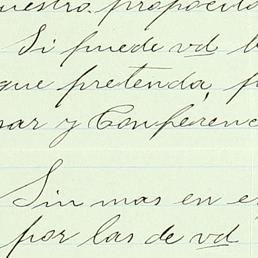 uestro proposito
Si puede vd
que pretenda,
nar y Conferenc
Sin mas en es
por las de vd